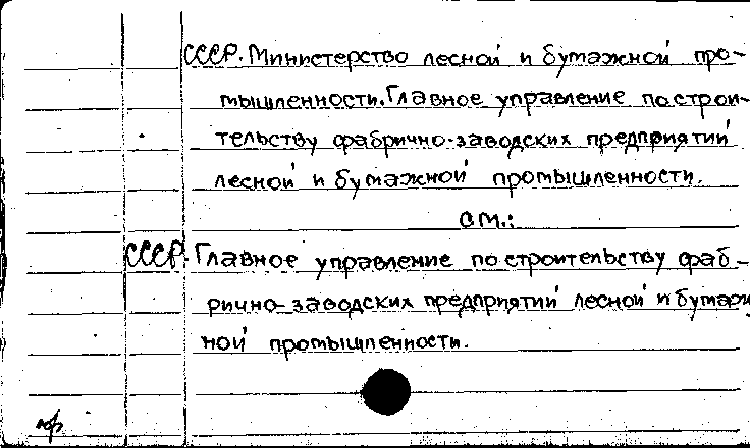 СССР. Министерство лесной и бумажной про-
мышленности. Главное управление по строи-
тельству фабрично-заводских предприятий
лесной и бумажной промышленности.
см.:
СССР. Главное управление по строительству фаб-
рично-заводских предприятий лесной и бумаж
ной промышленности.